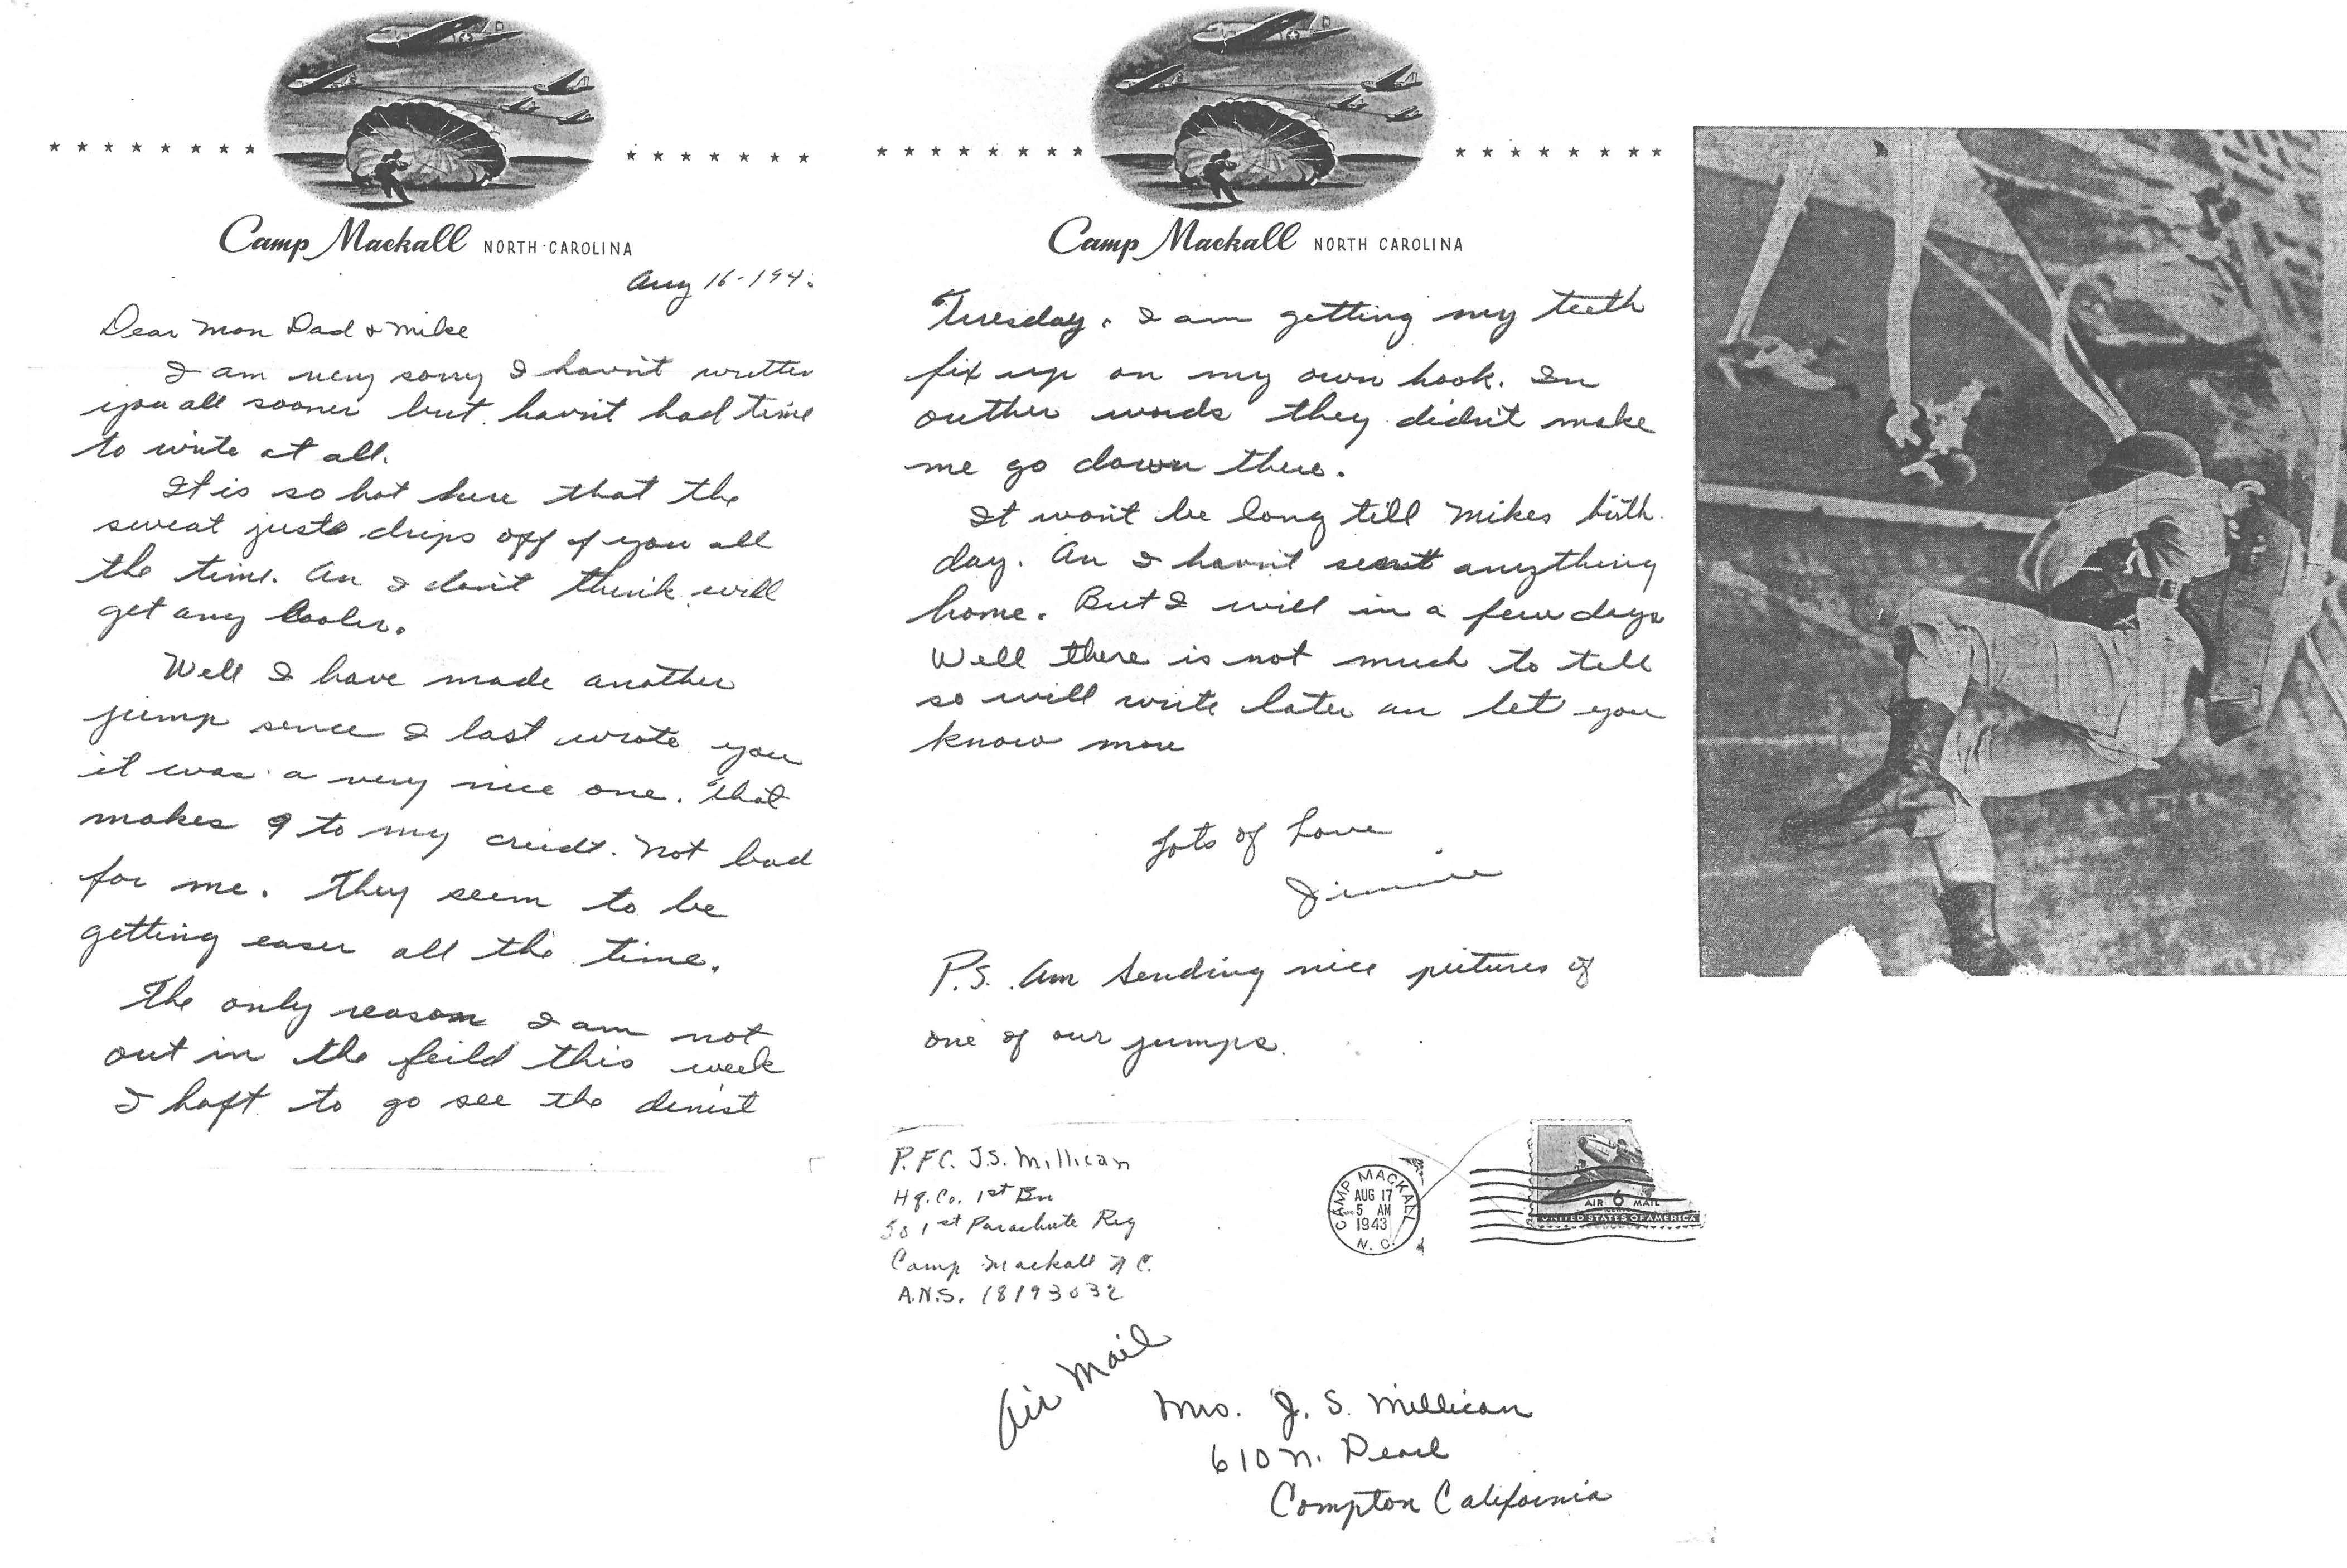 Camp Mackall NORTH CAROLINA
Aug 16-194
Dear Mom Dad & Mike
I am very sorry I havn't written
you all sooner but havn't had time
to write at all.
It is so hot here that the
sweat just drips off of you all
the time. An I don't think will
get any cooler.
Well I have made another
jump sence I last wrote you
it was a very nice one. That
makes 9 to my creidt. Not bad
for me. They seem to be
getting easer all the time.
The only reason I am not
out in the feild this week
I haft to go see the denist
Camp Mackall NORTH CAROLINA
Tuesday. I am getting my teeth
fix up on my own hook. In
outher words they didn't make
me go down there.
It won't be long till Mikes birth
day. An I havn't sent anything
home. But I will in a few days
Well there is not much to tell
so will write later an let you
know more
Lots of Love
Jimmie
P.S. Am sending nice pictures of
one of our jumps.
P.F.C. J.S. Millican
Hq. Co. 1st Bn
501st Parachute Reg
Camp Mackall N C.
A.N.S. 18193032
CAMP MACKALL
AUG 17
5 AM
1943
N. C.
AIR 6 MAIL
CENTS
UNITED STATES OF AMERICA
Air Mail
Mrs. J. S. Millican
610 N. Pearl
Compton California